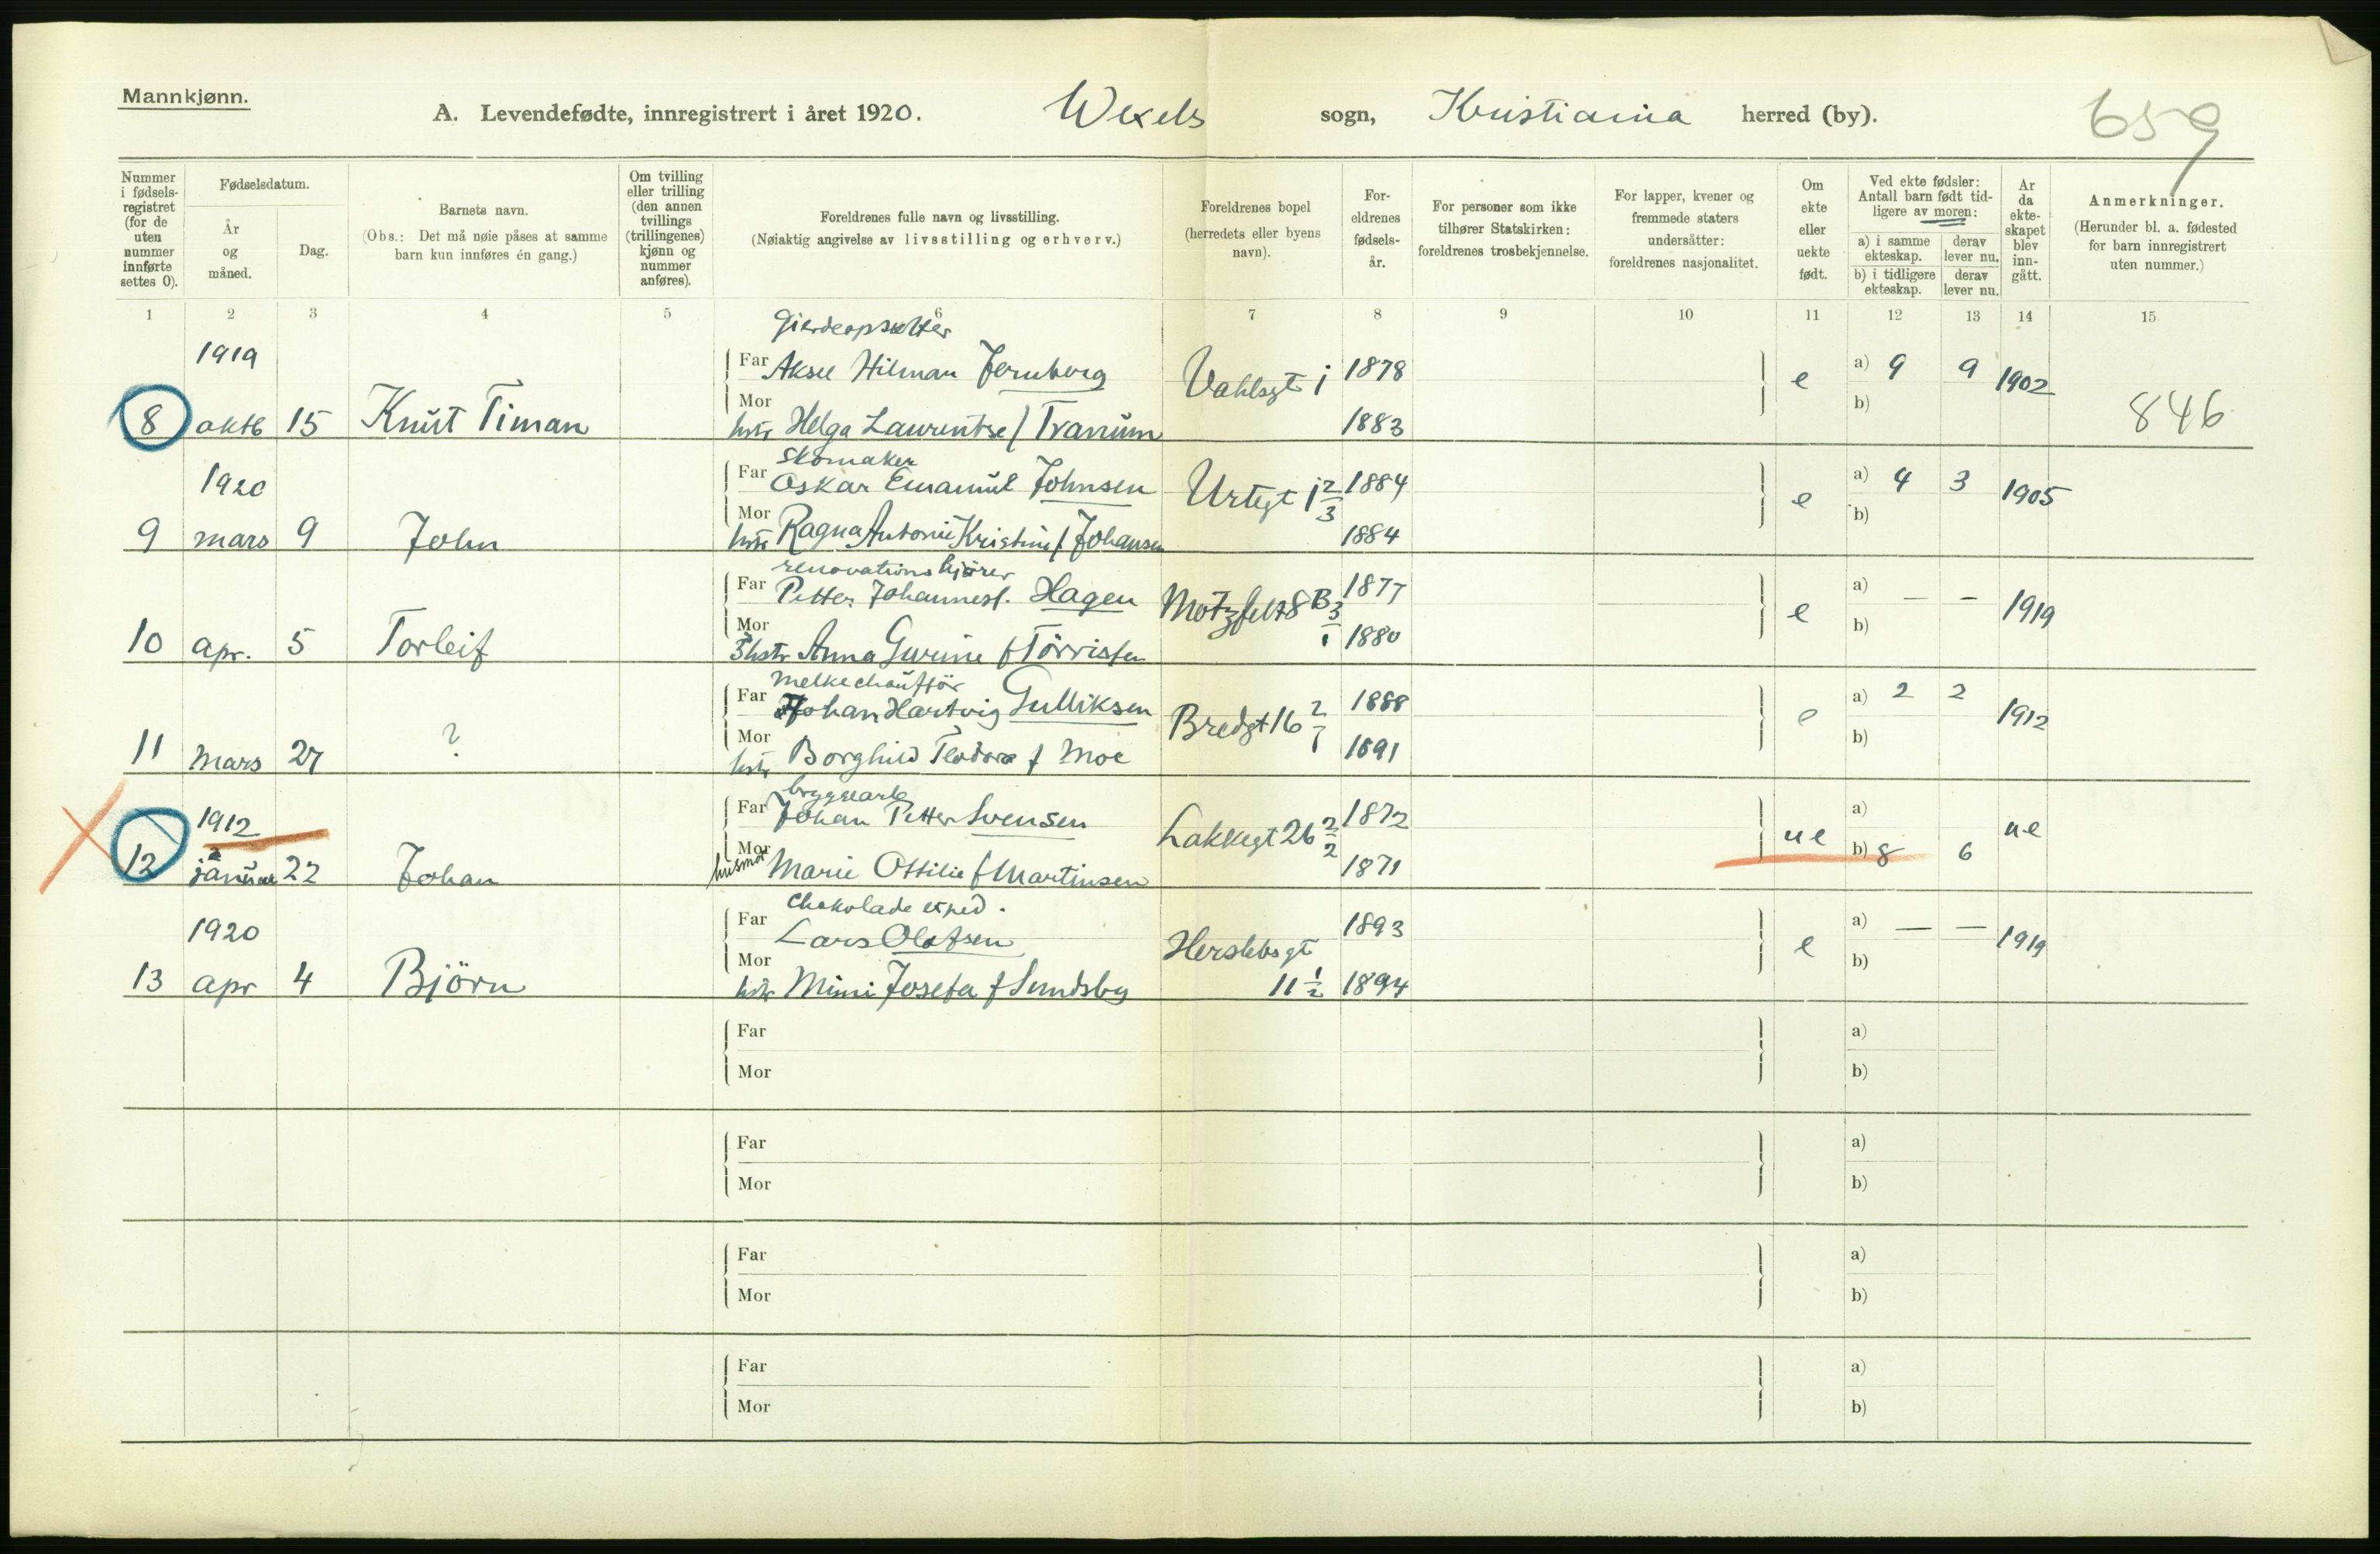 Mannkjønn.
A. Levendefødte, innregistrert i året 1920. Wexels sogn, Kristiania herred (by).
659
Nummer i fødselsregistret (for de uten nummer innførte settes 0).
Fødselsdatum.
År og måned.
Dag.
Barnets navn.
(Obs.: Det må nøie påses at samme barn kun innføres én gang.)
Om tvilling eller trilling (den annen tvillings (trillingenes) kjønn og nummer anføres).
Foreldrenes fulle navn og livsstilling.
(Nøiaktig angivelse av livsstilling og erhverv.)
Foreldrenes bopel (herredets eller byens navn).
Foreldrenes fødselsår.
For personer som ikke tilhører Statskirken: foreldrenes trosbekjennelse.
For lapper, kvener og fremmede staters undersåtter: foreldrenes nasjonalitet.
Om ekte eller uekte født.
Ved ekte fødsler: Antall barn født tidligere av moren:
a) i samme ekteskap. derav lever nu.
b) i tidligere ekteskap. derav lever nu.
År da ekteskapet blev inngått.
Anmerkninger.
(Herunder bl. a. fødested for barn innregistrert uten nummer.)
1 2 3 4 5 6 7 8 9 10 11 12 13 14 15
Gjerdeopsetter
1919 Far Aksel Hilmar Fernberg Vahlsgt 1 1878 e a) 9 9 1902
8 oktb 15 Knut Timan Mor hstr Helga Laurentse f Tranum 1883 b) 846
Skomaker
1920 Far Oskar Emanuel Johnsen Urtegt 1 2/3 1884 e a) 4 3 1905
9 mars 9 John Mor hstr Ragna Antonie Kristine f Johansen 1884 b)
renovationskjører
Far Petter Johannesf. Hagen Motzfelts 8 B 3/1 1877 e a) — — 1919
10 apr. 5 Torleif Mor hstr Anna Gurine f Törrissen 1880 b)
melkechaufför
Far Johan Hartvig Gulliksen Bredgt 16 2/7 1888 e a) 2 2 1912
11 mars 27 ? Mor hstr Borghild Teodora f Moe 1891 b)
bryggearb
1912 Far Johan Petter Svensen Lakkegt 26 2/2 1872 ue a) ue
12 januar 22 Johan Mor husmor Marie Ottilie f Martinsen 1871 b) 8 6
Chokolade exped.
1920 Far Lars Olafsen Herslebsgt 1893 e a) — — 1919
13 apr 4 Björn Mor hstr Mimi Josefa f Sundsby 11 1/2 1894 b)
Far a)
Mor b)
Far a)
Mor b)
Far a)
Mor b)
Far a)
Mor b)